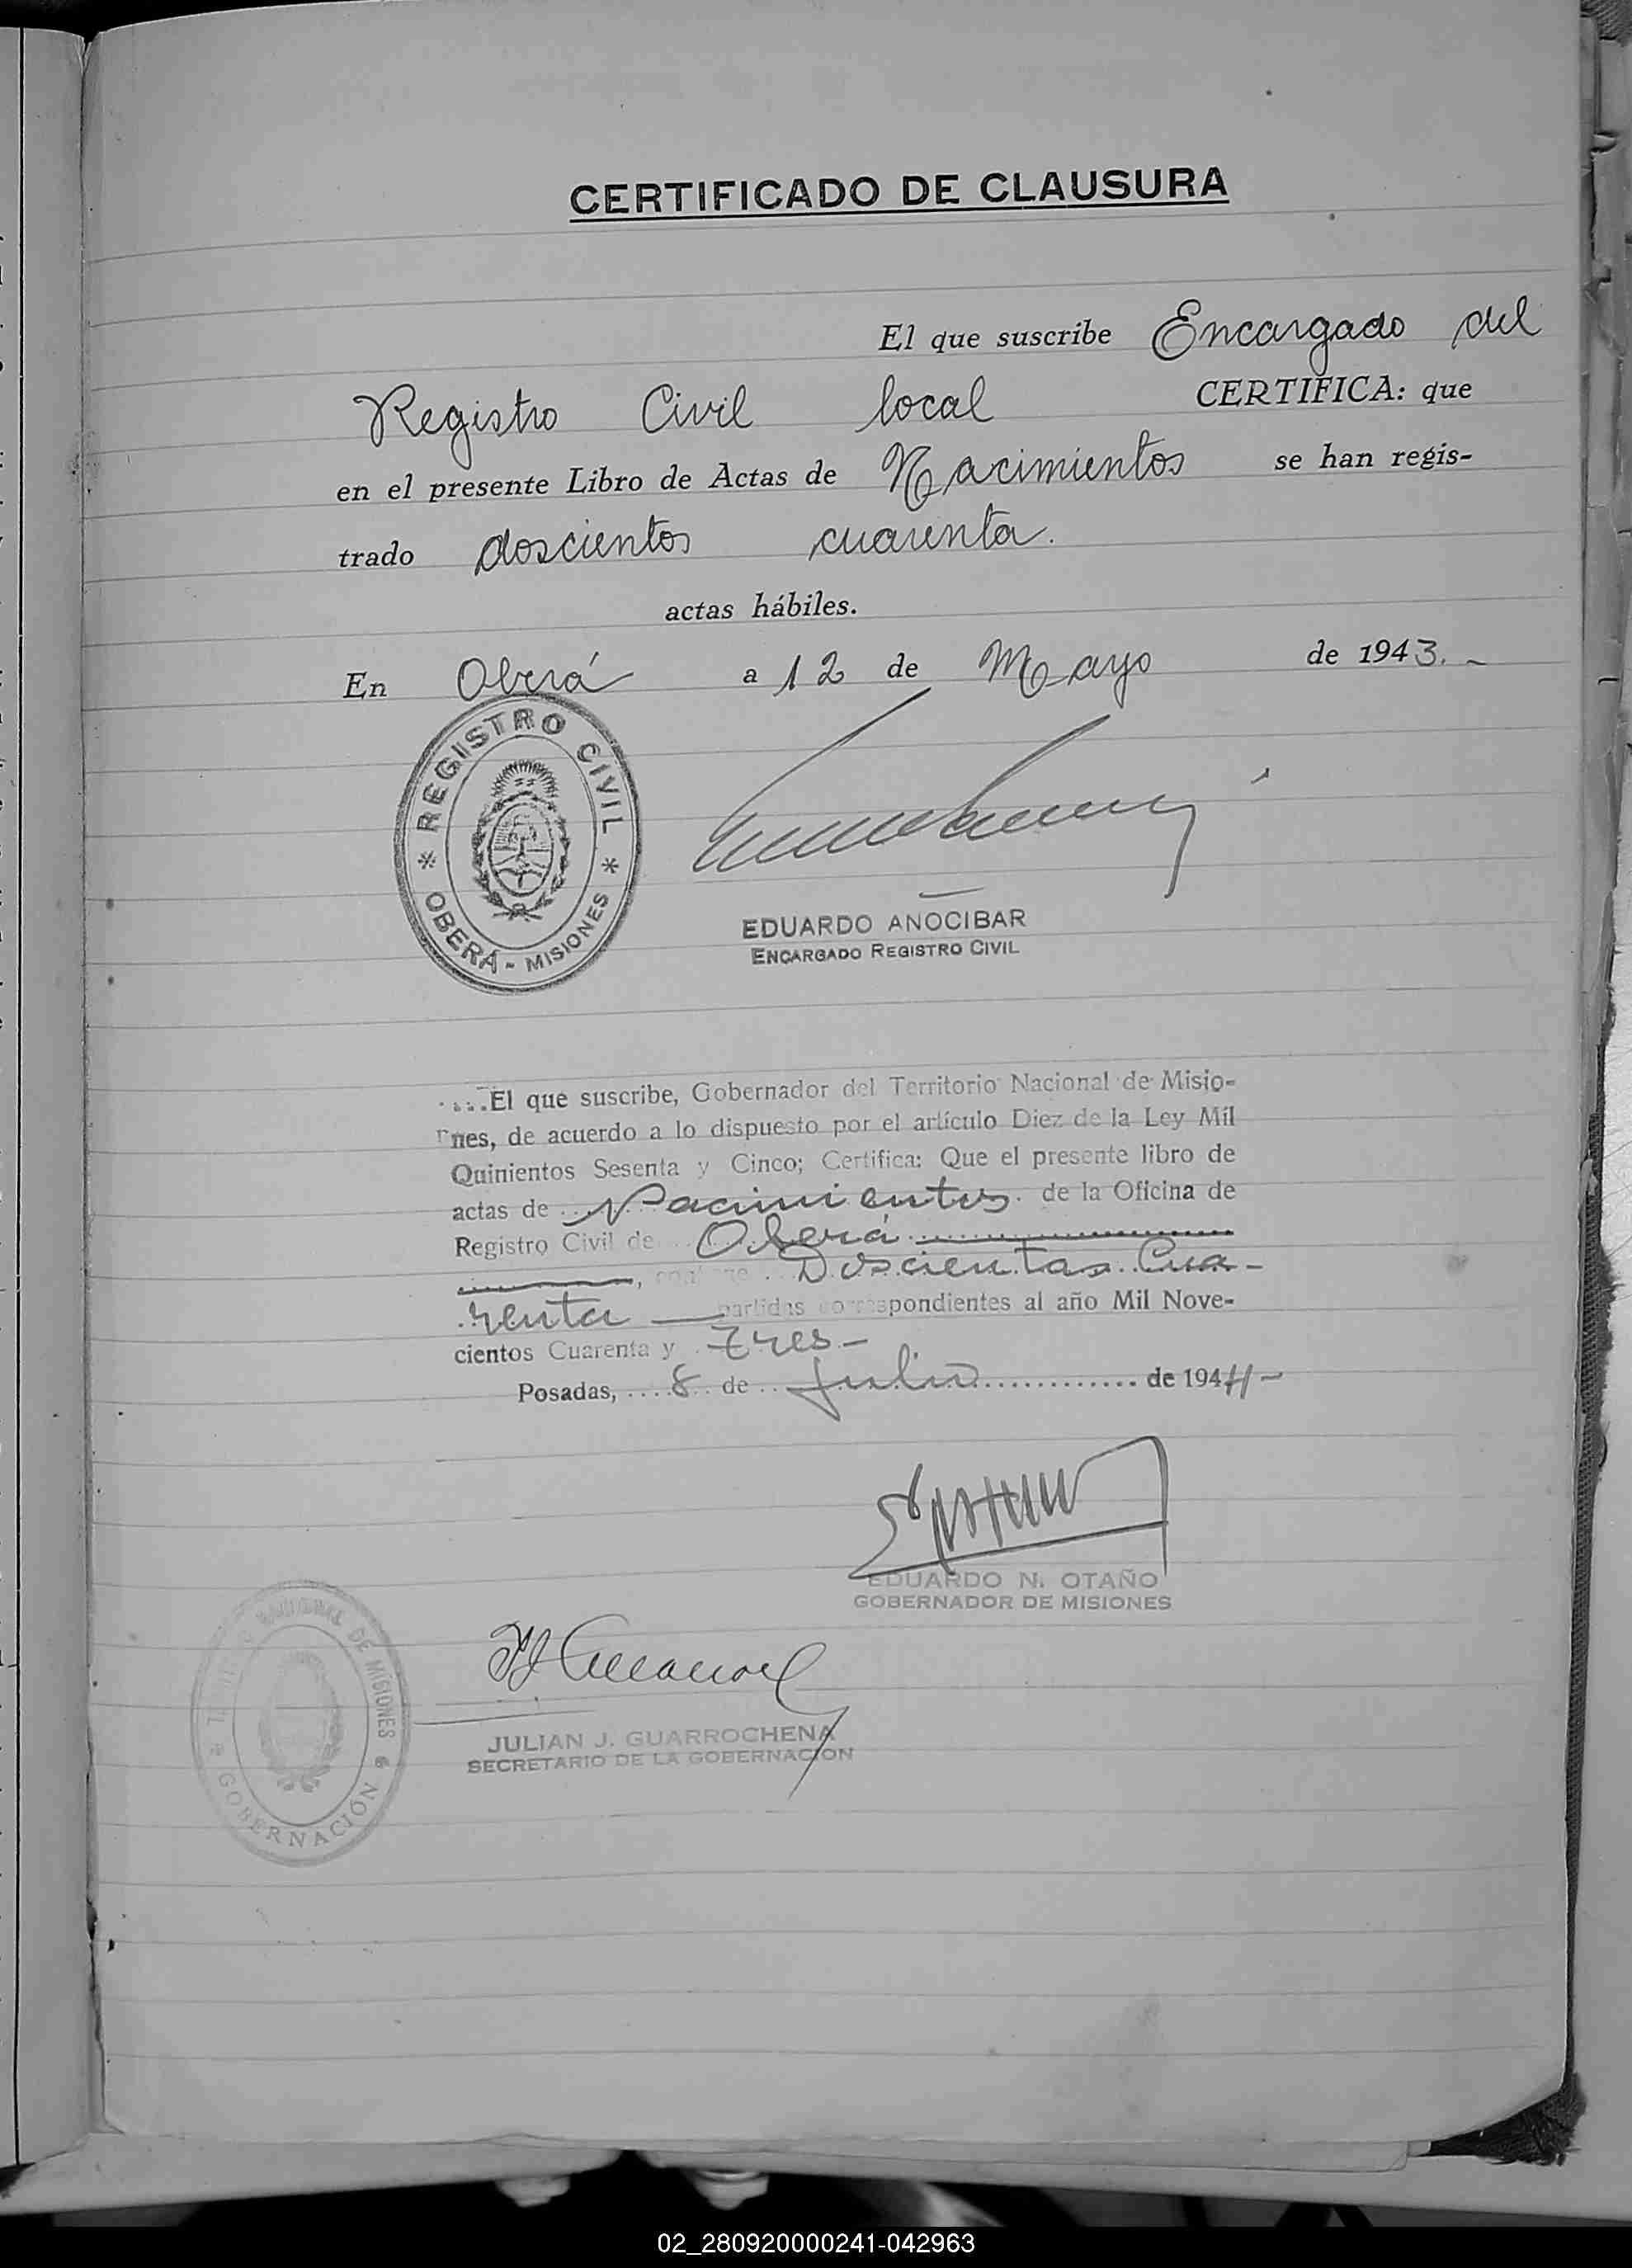 CERTIFICADO DE CLAUSURA
El que suscribe Encargado del
Registro Civil local CERTIFICA: que
en el presente Libro de Actas de Nacimientos se han regis-
trado doscientos cuarenta.
actas hábiles.
En Oberá a 12 de Mayo de 1943.-
REGISTRO CIVIL
OBERÁ - MISIONES
EDUARDO ANOCIBAR
ENCARGADO REGISTRO CIVIL
El que suscribe, Gobernador del Territorio Nacional de Misio-
nes, de acuerdo a lo dispuesto por el artículo Diez de la Ley Mil
Quinientos Sesenta y Cinco; Certifica: Que el presente libro de
actas de Nacimientos. de la Oficina de
Registro Civil de Oberá
Doscientas Cua-
renta partidas correspondientes al año Mil Nove-
cientos Cuarenta y tres-
Posadas, 8 de Julio de 1944-
EDUARDO N. OTAÑO
GOBERNADOR DE MISIONES
JULIAN J. GUARROCHENA
SECRETARIO DE LA GOBERNACION
NACIONAL DE MISIONES
GOBERNACIÓN
02_280920000241-042963